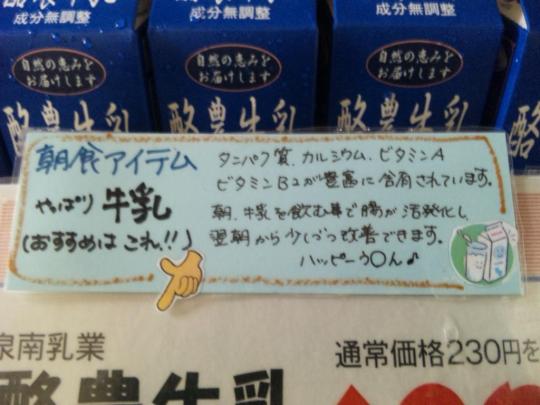 酪農牛乳
成分無調整
成分無調整
成分無調整
自然の恵みを
お届けします
自然の恵みを
お届けします
自然の恵みを
お届けします
酪農牛乳
酪農牛乳
酪農牛乳
酪
朝食アイテム
やっぱり 牛乳
(おすすめは これ!!)
タンパク質、カルシウム、ビタミンA
ビタミンB2が豊富に含有されています。
朝、牛乳を飲む事で腸が活発化し、
翌朝から少しづつ改善できます。
ハッピーう〇ん♪
泉南乳業
通常価格230円を
酪農牛乳